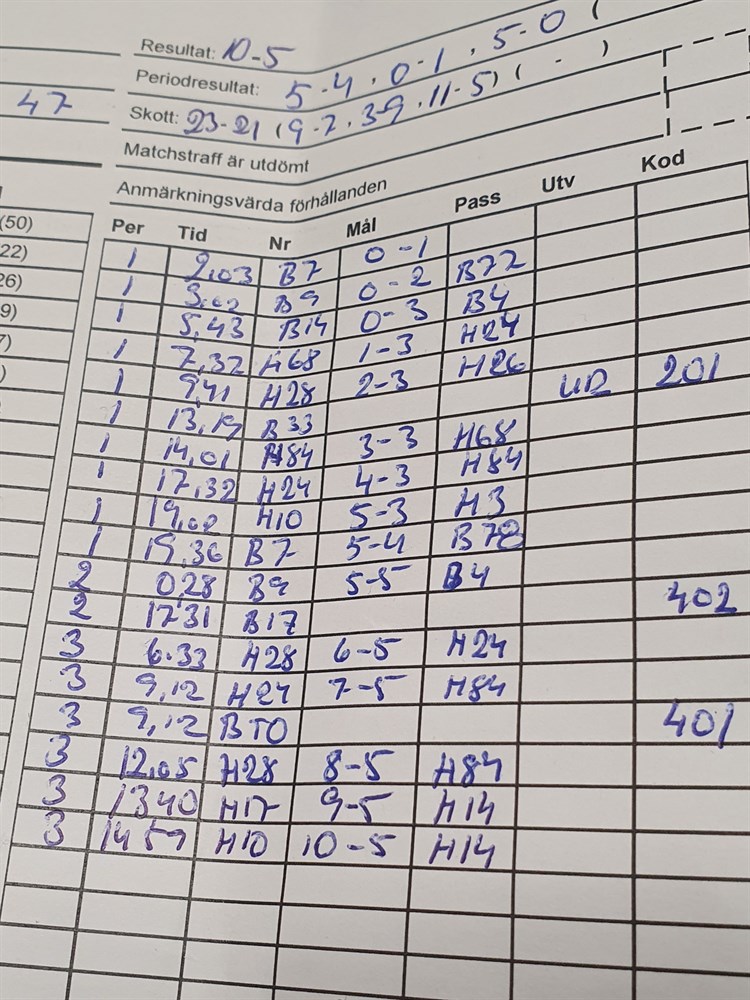 Resultat: 10-5
Periodresultat: 5-4, 0-1, 5-0 (
47
Skott: 23-21 (9-7, 3-9, 11-5) ( - )
Matchstraff är utdömt
Anmärkningsvärda förhållanden
(50)
22)
26)
9)
7)
)
Per Tid Nr Mål Pass Utv Kod
1 2,03 B7 0-1
1 3,02 B9 0-2 B72
1 5,43 B14 0-3 B4
1 7,32 H68 1-3 H24
1 9,41 H28 2-3 H26
1 13,19 B33 UR 201
1 14,01 H84 3-3 H68
1 17,32 H24 4-3 H84
1 19,02 H10 5-3 H3
1 19,36 B7 5-4 B78
2 0,28 B9 5-5 B4
2 1731 B17 402
3 6.33 H28 6-5 H24
3 9,12 H24 7-5 H84
3 9,12 BTO 401
3 12,05 H28 8-5 H84
3 1340 H17 9-5 H14
3 1459 H10 10-5 H14